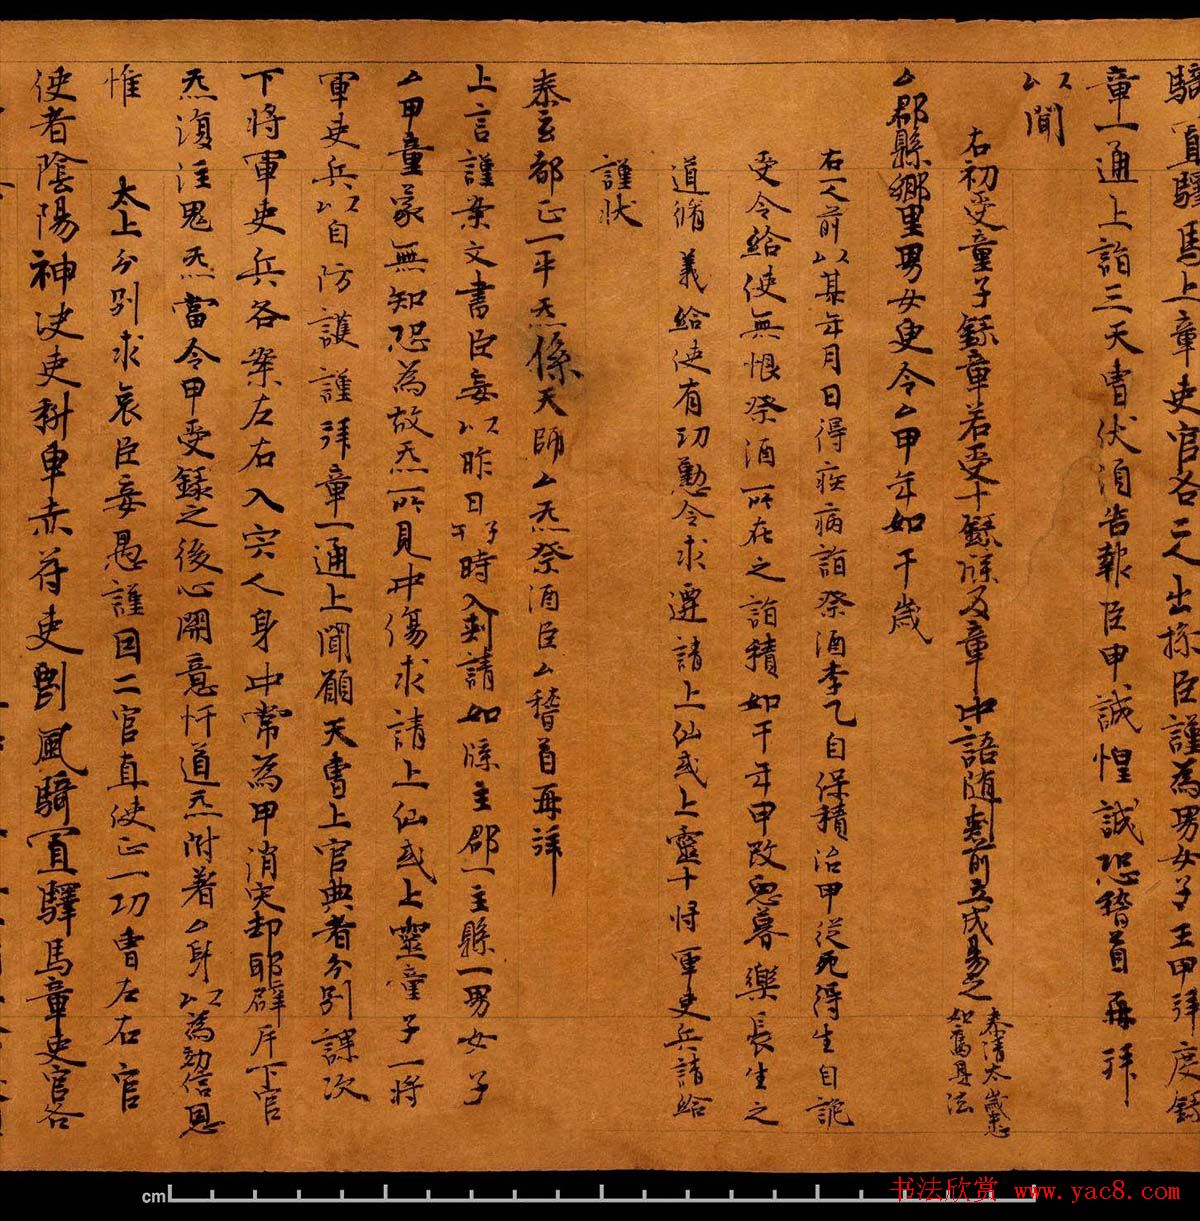 騎置驛馬上章吏官各三人出操臣謹為男女子王甲拜度錄
章一通上詣三天曹伏須告報臣甲誠惶誠恐稽首再拜
以聞
右初受童子錄章若受十錄牒及章中語隨制前立成易之
泰清太歲悉
如舊是法
厶郡縣鄉里男女更令厶甲年如干歲
右一人前以某年月日得疾病詣祭酒李乙自保積治甲從死得生自詭
受令給使無恨祭酒所在之詣積如干年甲改惡慕樂長生之
道脩義給使有功懃令求遷請上仙或上靈十將軍吏兵請給
謹狀
泰玄都正一平炁係天師厶炁祭酒臣厶稽首再拜
上言謹案文書臣每以昨日子午時入
請如牒主郡一主縣一男女子
厶甲童蒙無知恐為故炁所見中傷求請上仙或上靈童子一將
軍吏兵以自防護謹拜章一通上聞願天曹上官典者分別課次
下將軍吏兵各案左右入宍人身中常為甲消災却耶辟斥下官
炁復注鬼炁當令甲受錄之後心開意忏道炁附著厶身以為効信恩
惟
太上分別求哀臣妾愚謹因二官直使正一功曹左右官
使者陰陽神決吏科車赤符吏罡風騎置驛馬章吏官各
cm
书法欣赏 www.yac8.com